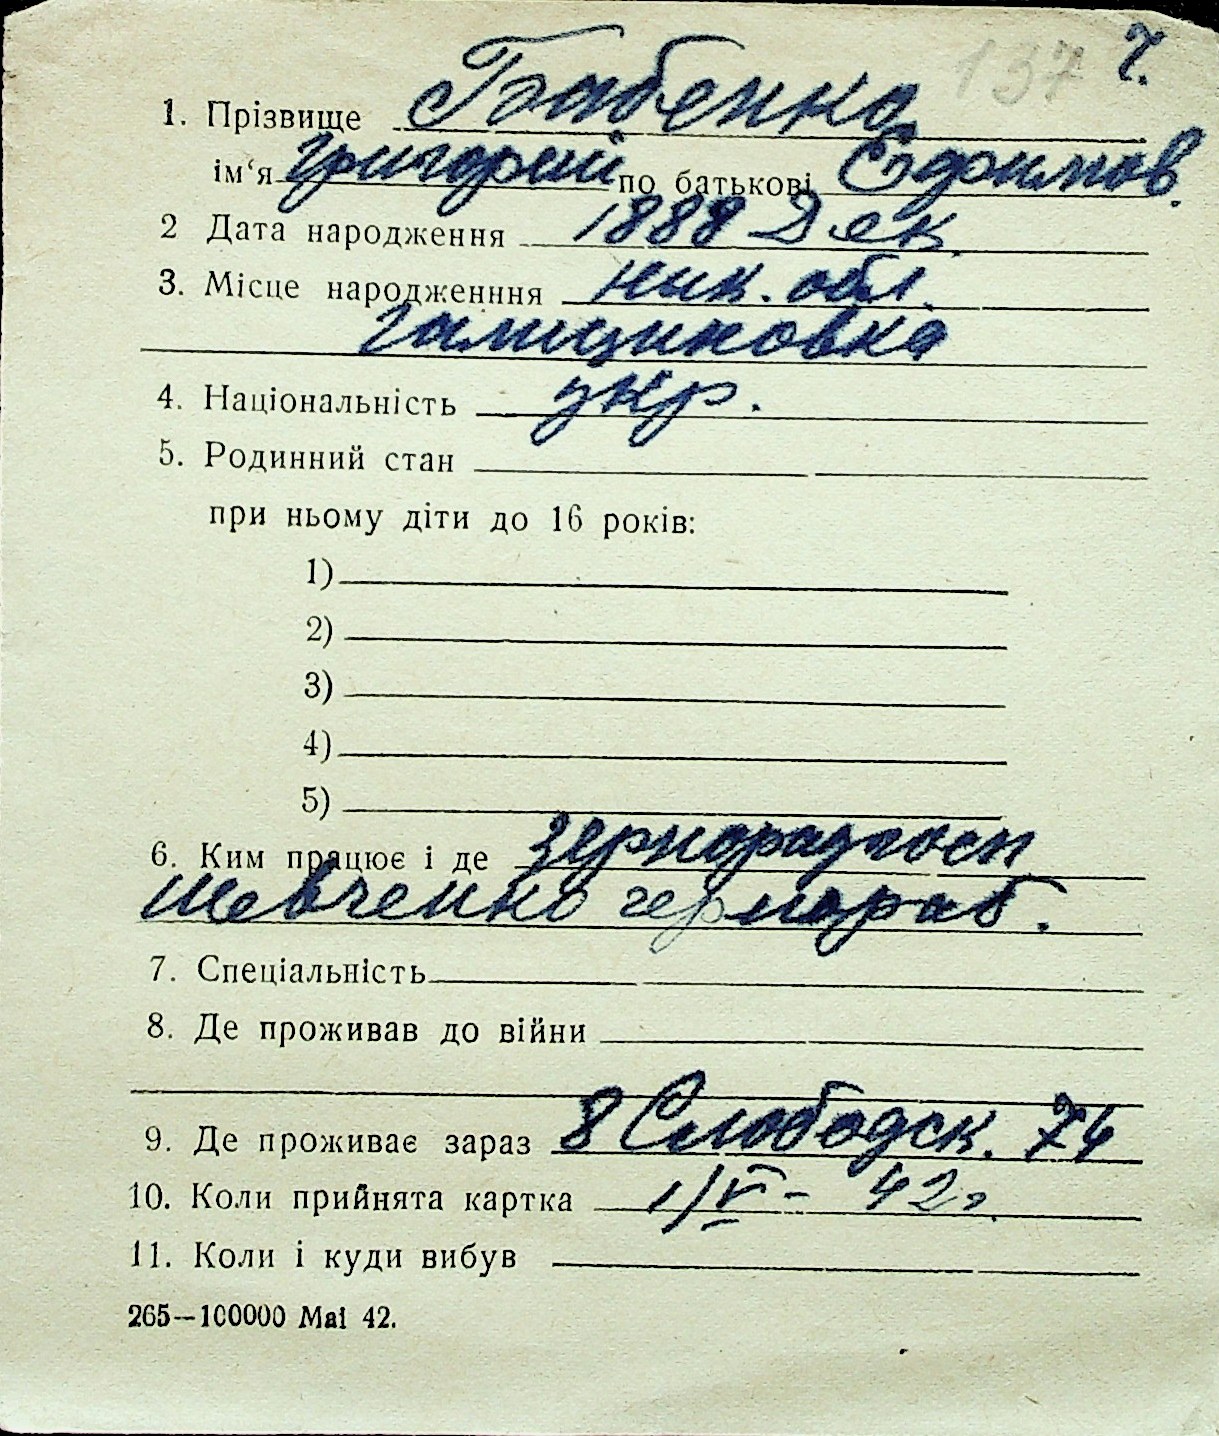 137 7.
1. Прізвище Бабенко
ім‘я Григорий по батькові Ефимов.
2 Дата народження 1888 Дек.
3. Місце народженння Ник. обл.
Галициновка
4. Національність укр.
5. Родинний стан
при ньому діти до 16 років:
1)
2)
3)
4)
5)
6. Ким працює і де
Шевченко чернораб.
7. Спеціальність
8. Де проживав до війни
9. Де проживає зараз 8 Слободск. 74
10. Коли прийнята картка 1/V - 42г.
11. Коли і куди вибув
265—100000 Mai 42.